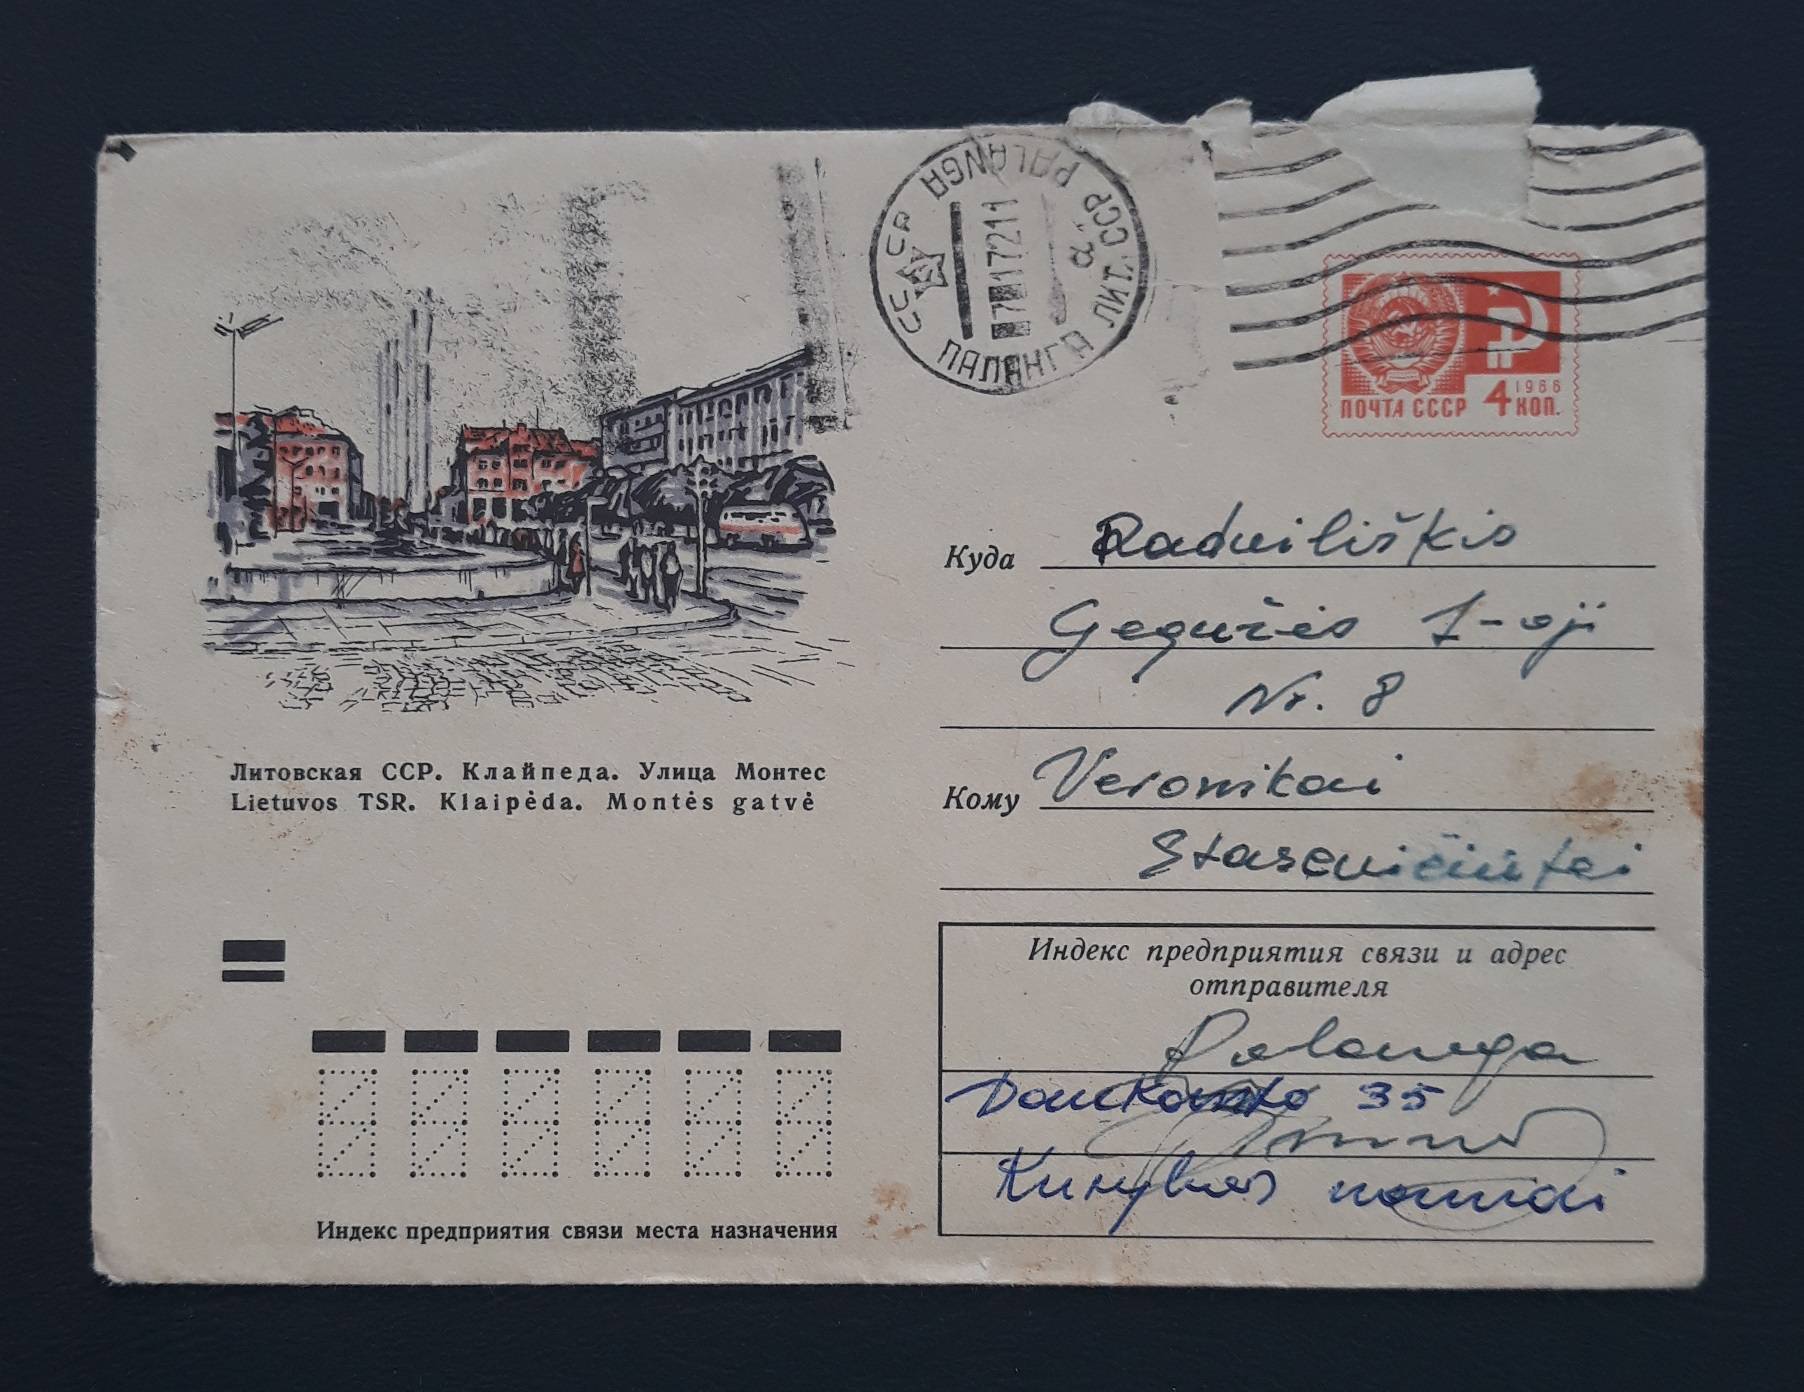 СССР PALANGA
7 1172 11
"a"
ПАЛАНГА ЛИТ. ССР PALANGA
1966
ПОЧТА СССР 4 КОП.
Куда Radviliškis
Gegužės 1-oji
Nr. 8
Кому Veronikai
Stasevičiūtei
Литовская ССР. Клайпеда. Улица Монтес
Lietuvos TSR. Klaipėda. Montės gatvė
Индекс предприятия связи и адрес
отправителя
Palanga
Daukanto 35
Kūrybos namai
Индекс предприятия связи места назначения